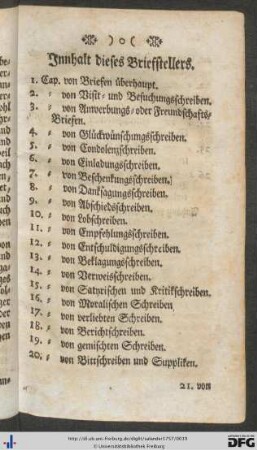 ) o (
Innhalt dieses Briefstellers.
1. Cap. von Briefen überhaupt.
2. = von Visit- und Besuchungsschreiben.
3. = von Anwerbungs- oder Freundschafts-
Briefen.
4. = von Glückwünschungsschreiben.
5. = von Condolenzschreiben.
6. = von Einladungsschreiben.
7. = von Beschenkungsschreiben.
8. = von Danksagungsschreiben.
9. = von Abschiedsschreiben.
10. = von Lobschreiben.
11. = von Empfehlungsschreiben.
12. = von Entschuldigungsschreiben.
13. = von Beklagungsschreiben.
14. = von Verweisschreiben.
15. = von Satyrischen und Kritikschreiben.
16. = von Moralischen Schreiben
17. = von verliebten Schreiben.
18. = von Berichtschreiben.
19. = von gemischten Schreiben.
20. = von Bittschreiben und Suppliken.
21. von
© Universitätsbibliothek Freiburg
DFG